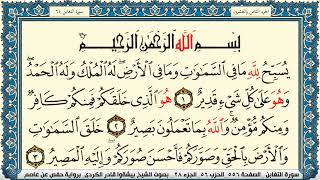 الجزء الثامن والعشرون
سورة التغابن ٦٤
بِسْمِ اللَّهِ الرَّحْمَٰنِ الرَّحِيمِ
يُسَبِّحُ لِلَّهِ مَا فِي السَّمَٰوَٰتِ وَمَا فِي الْأَرْضِ لَهُ الْمُلْكُ وَلَهُ الْحَمْدُ
وَهُوَ عَلَىٰ كُلِّ شَيْءٍ قَدِيرٌ ١ هُوَ الَّذِي خَلَقَكُمْ فَمِنكُمْ كَافِرٌ
وَمِنكُم مُّؤْمِنٌ وَاللَّهُ بِمَا تَعْمَلُونَ بَصِيرٌ ٢ خَلَقَ السَّمَٰوَٰتِ
وَالْأَرْضَ بِالْحَقِّ وَصَوَّرَكُمْ فَأَحْسَنَ صُوَرَكُمْ وَإِلَيْهِ الْمَصِيرُ ٣
سورة التغابن الصفحة ٥٥٦ الحزب ٥٦ الجزء ٢٨ بصوت الشيخ بيشةوا قادر الكردي برواية حفص عن عاصم